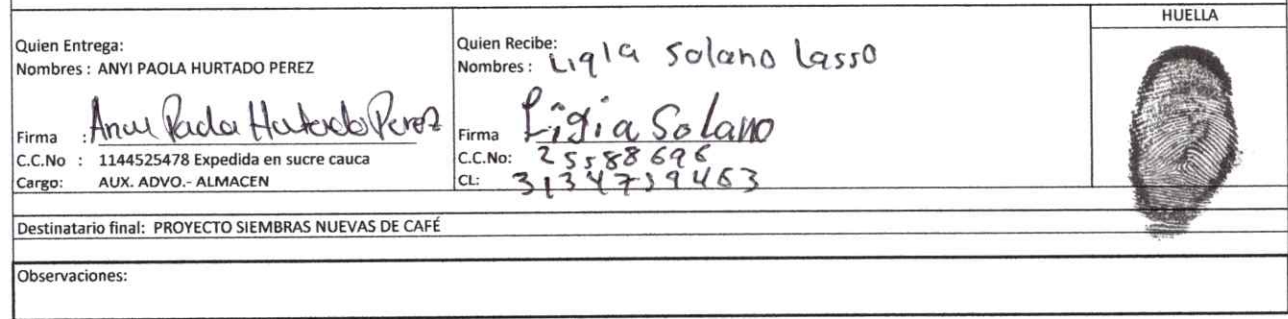 HUELLA
Quien Entrega:
Nombres : ANYI PAOLA HURTADO PEREZ
Firma : Anyi Paola Hurtado Perez
C.C.No : 1144525478 Expedida en sucre cauca
Cargo: AUX. ADVO.- ALMACEN
Quien Recibe:
Nombres : Ligia Solano Lasso
Firma Ligia Solano
C.C.No: 25588696
CL: 3134739463
Destinatario final: PROYECTO SIEMBRAS NUEVAS DE CAFÉ
Observaciones: